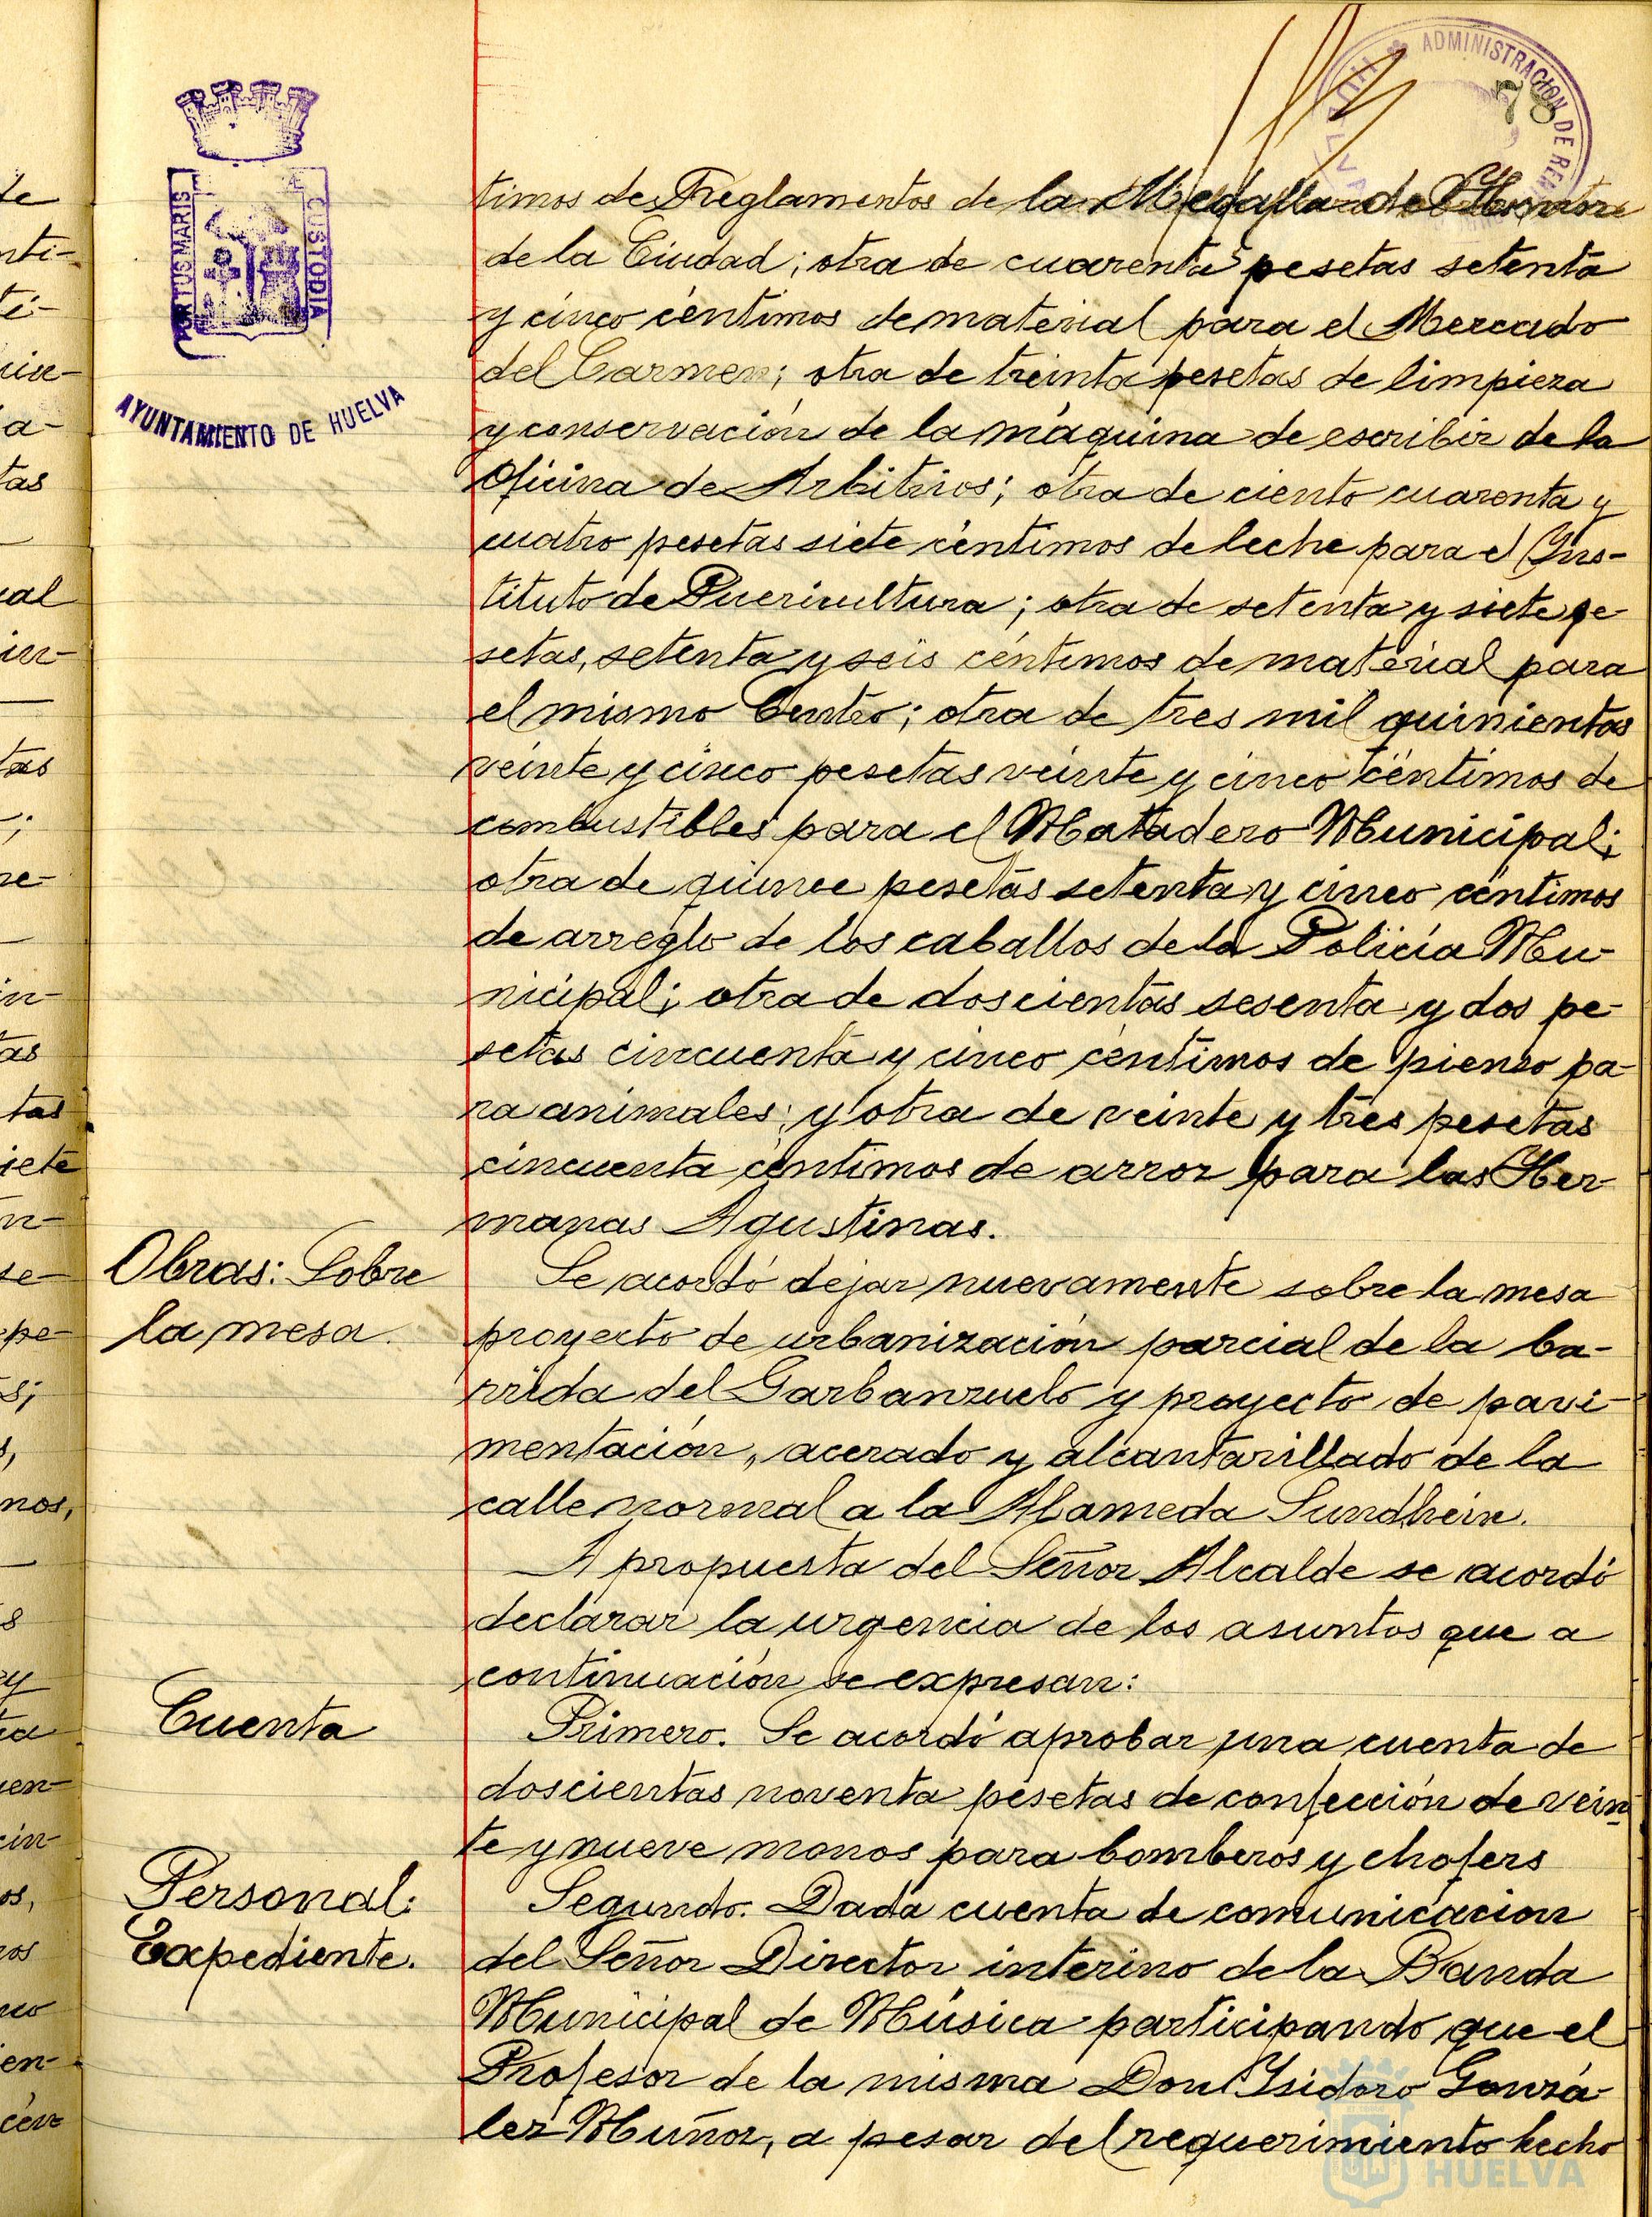 ADMINISTRACION DE REN
78
PORTUS MARIS
CUSTODIA
AYUNTAMIENTO DE HUELVA
timos de Reglamentos de la Medalla de Honor
de la Ciudad; otra de cuarenta pesetas setenta
y cinco céntimos de material para el Mercado
del Carmen; otra de treinta pesetas de limpieza
y conservación de la máquina de escribir de la
Oficina de Arbitrios; otra de ciento cuarenta y
cuatro pesetas siete céntimos de leche para el Ins-
tituto de Puericultura; otra de setenta y siete pe-
setas, setenta y seis céntimos de material para
el mismo Centro; otra de tres mil quinientas
veinte y cinco pesetas veinte y cinco céntimos de
combustibles para el Matadero Municipal;
otra de quince pesetas setenta y cinco céntimos
de arreglo de los caballos de la Policía Mu-
nicipal; otra de doscientas sesenta y dos pe-
setas cincuenta y cinco céntimos de pienso pa-
ra animales; y otra de veinte y tres pesetas
cincuenta céntimos de arroz para las Her-
manas Agustinas.
Obras: Sobre
la mesa.
Se acordó dejar nuevamente sobre la mesa
proyecto de urbanización parcial de la ba-
rrida del Garbanzuelo y proyecto de pavi-
mentación, acerado y alcantarillado de la
calle normal a la Alameda Sundhein.
A propuesta del Señor Alcalde se acordó
declarar la urgencia de los asuntos que a
continuación se expresan:
Cuenta
Primero. Se acordó aprobar una cuenta de
doscientas noventa pesetas de confección de vein
te y nueve monos para bomberos y chofers
Personal:
Expediente.
Segundo. Dada cuenta de comunicación
del Señor Director interino de la Banda
Municipal de Música participando que el
Profesor de la misma Don Isidoro Gonzá-
lez Muñoz, a pesar del requerimiento hecho
HUELVA